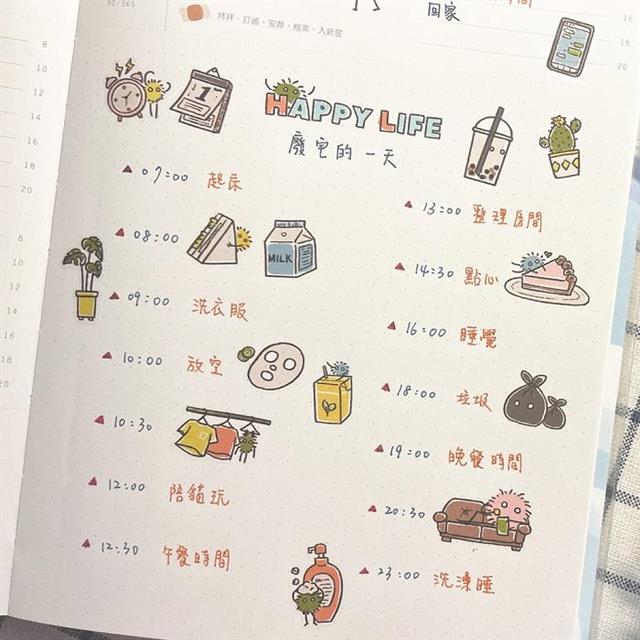 90/365
拜拜、訂婚、安葬、搬家、入新居
回家
時間
16
18
20
8
10
12
14
16
18
20
8
10
12
14
16
18
20
1
HAPPY LIFE
廢宅的一天
07:00 起床
08:00
MILK
09:00 洗衣服
10:00 放空
10:30
12:00 陪貓玩
12:30 午餐時間
13:00 整理房間
14:30 點心
16:00 睡覺
18:00 垃圾
19:00 晚餐時間
20:30
23:00 洗澡睡